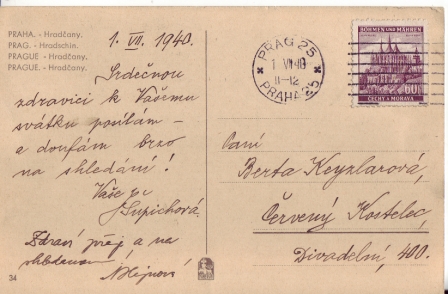 PRAHA. - Hradčany.
PRAG. - Hradschin.
PRAGUE - Hradčany.
PRAGUE. - Hradčany.
1. VII. 1940.
Srdečnou
zdravici k Vašemu
svátku posílám -
a doufám brzo
na shledání!
Vaše
Zdraví přeji a na
34
PRAG 25
1 VII 40
11-12
PRAHA 25
BÖHMEN UND MÄHREN
60
ČECHY A MORAVA
Paní
Berta Keyzlarová,
Červený Kostelec,
Divadelní, 400.